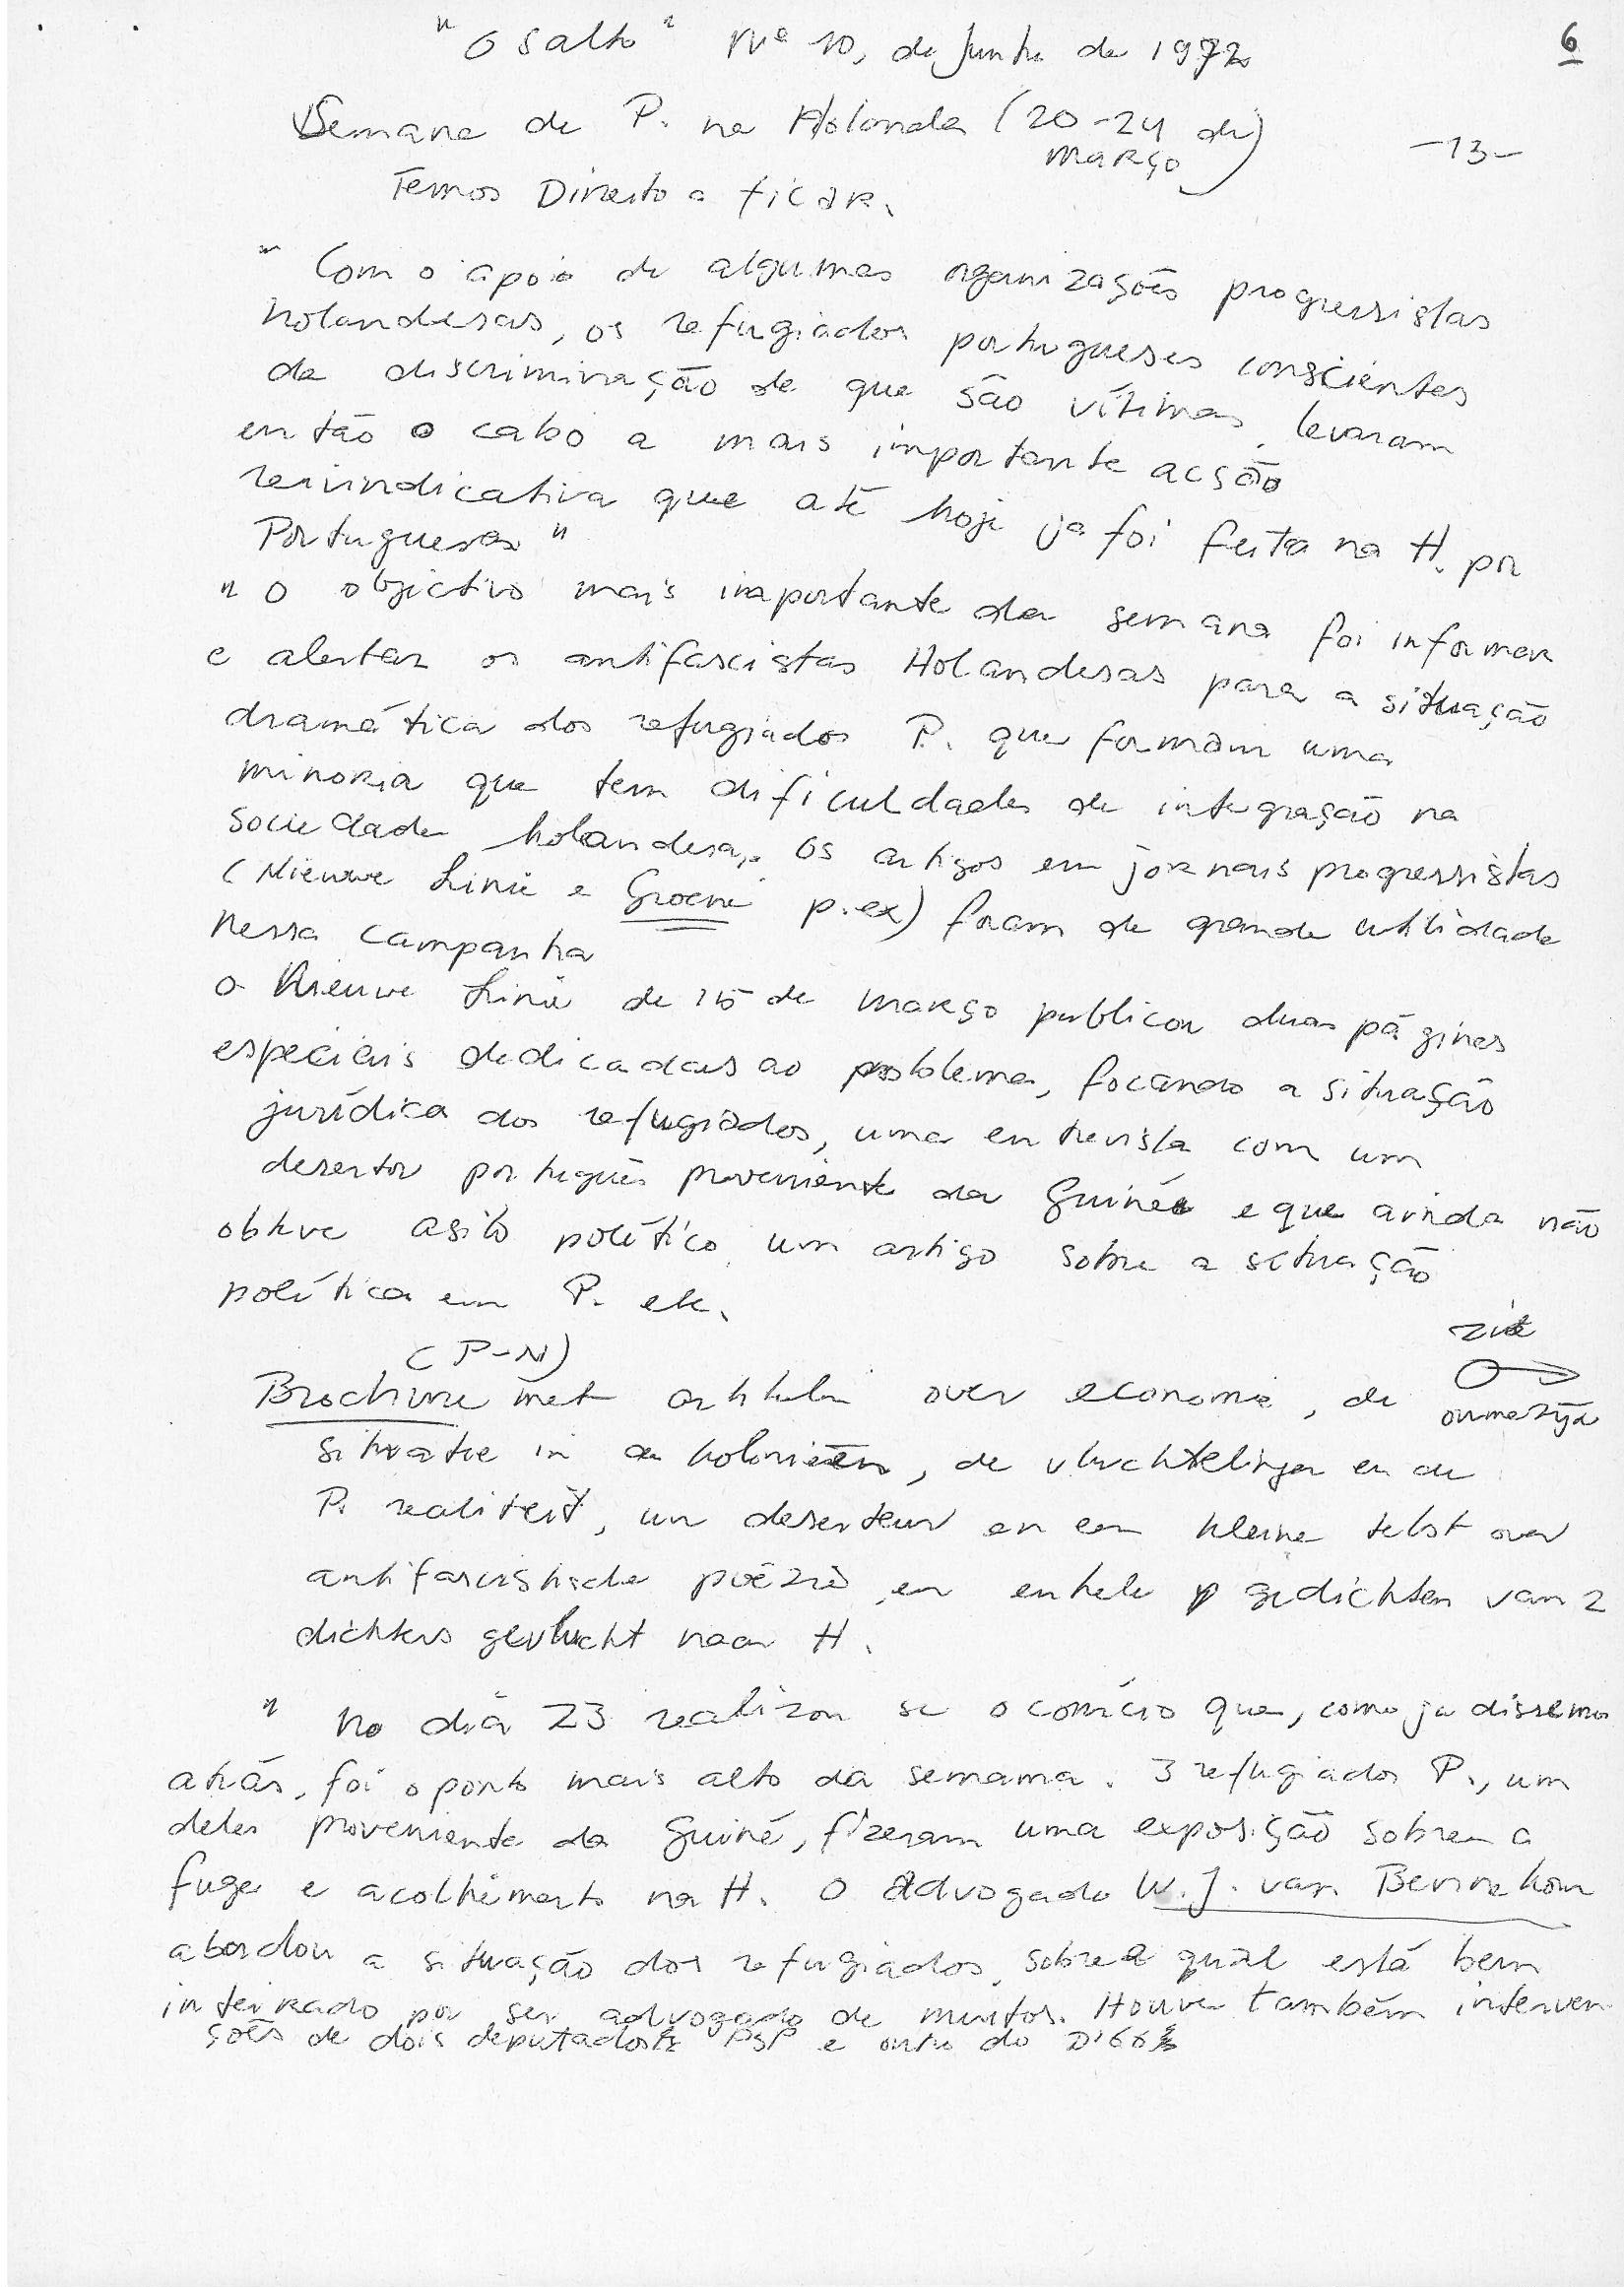 "O salto" Nº 10, de Junho de 1972
6
Semana de P. na Holanda (20-24 de
março)
-13-
Temos Direito a ficar.
" Com o apoio de algumas organizações progressistas
holandesas, os refugiados portugueses conscientes
da discriminação de que são vítimas, levaram
então a cabo a mais importante acção
reivindicativa que até hoje ja foi feita na H. por
Portugueses"
" O objectivo mais importante da semana foi informar
e alertar os antifascistas Holandesas para a situação
dramática dos refugiados P. que formam uma
minoria que tem dificuldades de integração na
sociedade holandesa. Os artigos em jornais progressistas
(Nieuwe Linie e Groene p.ex) foram de grande utilidade
nessa campanha
O Nieuwe Linie de 15 de março publicou duas páginas
especiais dedicadas ao problema, focando a situação
jurídica dos refugiados, uma entrevista com um
desertor português proveniente da Guiné e que ainda não
obteve asilo político, um artigo sobre a situação
política em P. etc.
zie
(P-N)
Brochure met artikelen over economie, de ommezijde
situatie in de koloniëen, de vluchtelingen en de
P. realiteit, un deserteur en een kleine tekst over
antifascistische poëzie, en enkele gedichten van 2
dichters gevlucht naar H.
" No dia 23 realizou se o comício que, como ja dissemos
atrás, foi o ponto mais alto da semana. 3 refugiados P., um
deles proveniente da Guiné, fizeram uma exposição sobre a
fuga e acolhimento na H. O Advogado W.J. van Bennekom
abordou a situação dos refugiados, sobre a qual está bem
inteirado por ser advogado de muitos. Houve também interven
ções de dois deputados PSP e outro do D'66